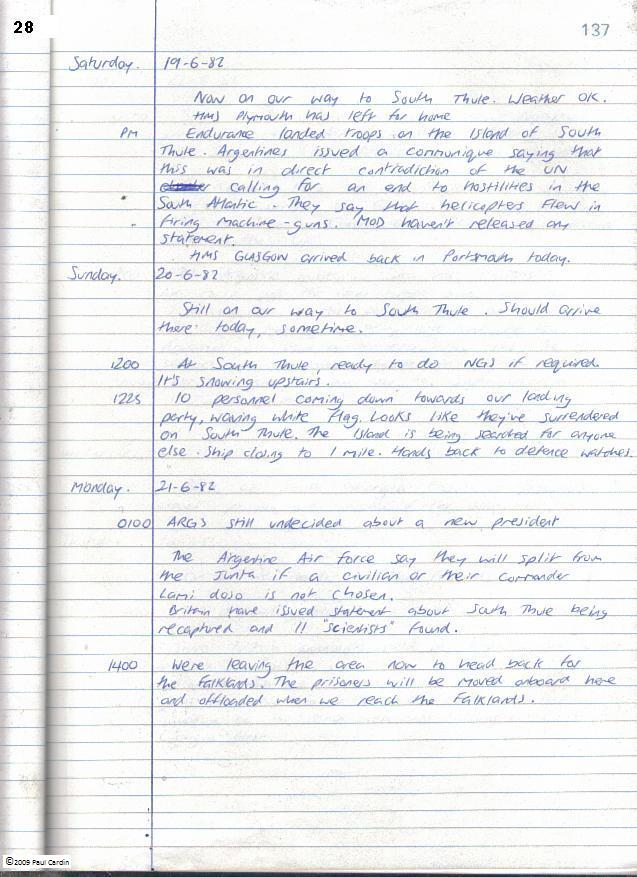 28
137
Saturday. 19-6-82
Now on our way to South Thule. Weather OK.
HMS Plymouth has left for home
PM Endurance landed troops on the Island of South
Thule. Argentines issued a communique saying that
this was in direct contradiction of the UN
calling for an end to hostilities in the
South Atlantic. They say that helicopters flew in
firing machine-guns. MOD haven't released any
statement.
HMS GLASGOW arrived back in Portsmouth today.
Sunday. 20-6-82
Still on our way to South Thule. Should arrive
there today, sometime.
1200 At South Thule, ready to do NGS if required.
It's snowing upstairs.
1225 10 personnel coming down towards our landing
party, waving white flag. Looks like they've surrendered
on South Thule. The Island is being searched for anyone
else. Ship closing to 1 mile. Hands back to defence watches.
Monday. 21-6-82
0100 ARGS still undecided about a new president
The Argentine Air force say they will split from
the Junta if a civilian or their Commander
Lami dozo is not chosen.
Britain have issued statement about South Thule being
recaptured and 11 "scientists" found.
1400 Were leaving the area now to head back for
the Falklands. The prisoners will be moved onboard here
and offloaded when we reach the Falklands.
©2009 Paul Cardin